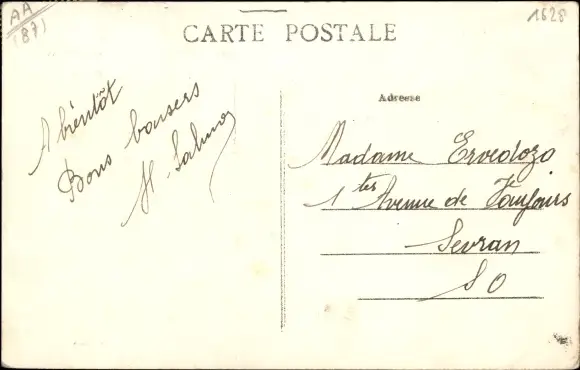 AA
(871)
1628
CARTE POSTALE
A bientôt
Bons baisers
H. Salmon
Adresse
Madame Ervedozo
1 ter Avenue de
Sevran
S O